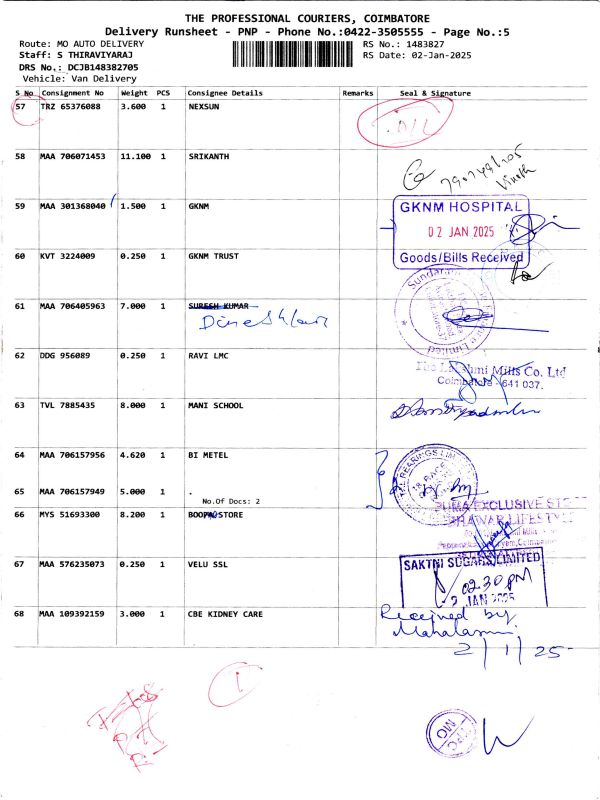 THE PROFESSIONAL COURIERS, COIMBATORE
Delivery Runsheet - PNP - Phone No.:0422-3505555 - Page No.:5
Route: MO AUTO DELIVERY RS No.: 1483827
Staff: S THIRAVIYARAJ RS Date: 02-Jan-2025
DRS No.: DCJB148382705
Vehicle: Van Delivery
S No Consignment No Weight PCS Consignee Details Remarks Seal & Signature
57 TRZ 65376088 3.600 1 NEXSUN
58 MAA 706071453 11.100 1 SRIKANTH
59 MAA 301368040 1.500 1 GKNM
GKNM HOSPITAL
02 JAN 2025
Goods/Bills Received
60 KVT 3224009 0.250 1 GKNM TRUST
61 MAA 706405963 7.000 1 SURESH KUMAR
62 DDG 956089 0.250 1 RAVI LMC
The Lakshmi Mills Co. Ltd
Coimbatore - 641 037.
63 TVL 7885435 8.000 1 MANI SCHOOL
64 MAA 706157956 4.620 1 BI METEL
65 MAA 706157949 5.000 1 .
No.Of Docs: 2
66 MYS 51693300 8.200 1 BOOPA STORE
PUMA EXCLUSIVE
67 MAA 576235073 0.250 1 VELU SSL
SAKTHI SUGARS LIMITED
02.30 PM
2 JAN 2025
68 MAA 109392159 3.000 1 CBE KIDNEY CARE
Received by
2/1/25
TPC
MO